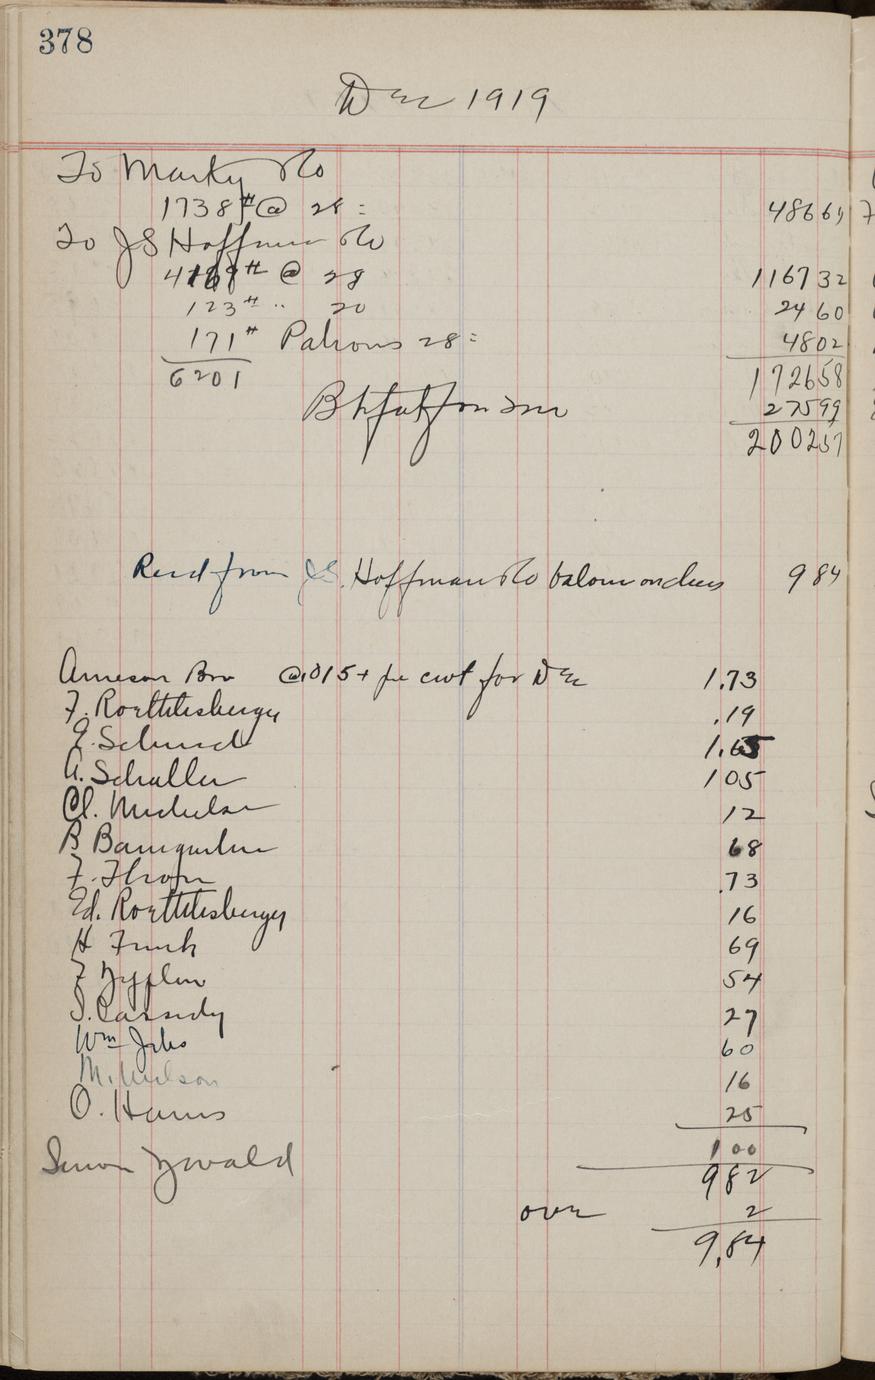 378
Dec 1919
To Marty Co
1738# @ 28 =
48664
To JS Hoffman Co
4169# @ 28
116732
123# " 20
2460
171# Patrons 28 =
4802
6201
172658
27599
200257
Recd from J.S. Hoffman Co balance on cheese
984
Arneson Bro @.015+ per cwt for Dec
1.73
F. Roethlesberger
.19
1.65
A. Schaller
105
Cl. Michelson
12
B Baumgartner
68
F. Thom
.73
Ed. Roethlesberger
16
H Funk
69
54
S. Cassidy
27
Wm
60
M. Nielson
16
O. Harris
25
100
982
over
2
9,84